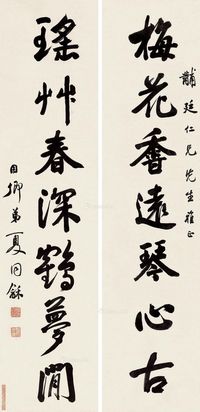 梅花香遠琴心古
黼廷仁兄先生雅正
瑤艸春深鶴夢閒
用卿弟夏同龢